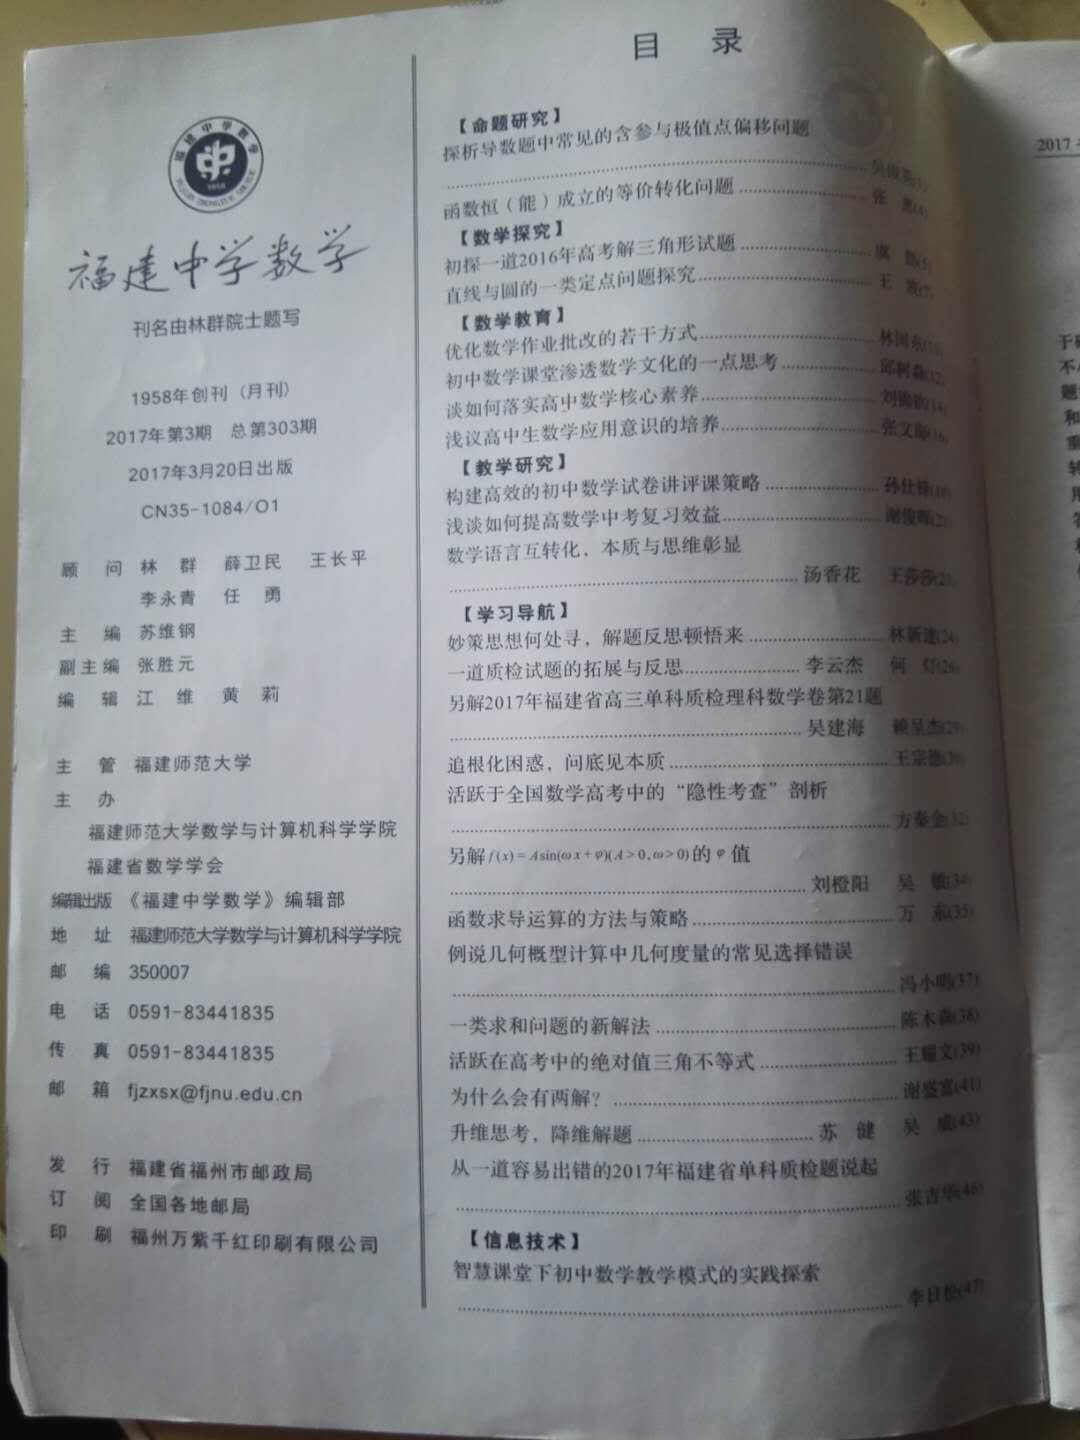 福建中学数学
1958
福建中学数学
刊名由林群院士题写
1958年创刊（月刊）
2017年第3期 总第303期
2017年3月20日出版
CN35-1084/O1
顾 问 林 群 薛卫民 王长平
李永青 任 勇
主 编 苏维钢
副主编 张胜元
编 辑 江 维 黄 莉
主 管 福建师范大学
主 办
福建师范大学数学与计算机科学学院
福建省数学学会
编辑出版 《福建中学数学》编辑部
地 址 福建师范大学数学与计算机科学学院
邮 编 350007
电 话 0591-83441835
传 真 0591-83441835
邮 箱 fjzxsx@fjnu.edu.cn
发 行 福建省福州市邮政局
订 阅 全国各地邮局
印 刷 福州万紫千红印刷有限公司
目 录
【命题研究】
探析导数题中常见的含参与极值点偏移问题
函数恒（能）成立的等价转化问题 张
【数学探究】
初探一道2016年高考解三角形试题 (5)
直线与圆的一类定点问题探究 王 (7)
【数学教育】
优化数学作业批改的若干方式 林国东
初中数学课堂渗透数学文化的一点思考 邱树森(12)
谈如何落实高中数学核心素养 (14)
浅议高中生数学应用意识的培养 张文海(16)
【教学研究】
构建高效的初中数学试卷讲评课策略 孙仕
浅谈如何提高数学中考复习效益 谢俊晖
数学语言互转化，本质与思维彰显
汤香花 王莎莎
【学习导航】
妙策思想何处寻，解题反思顿悟来 林新建(24)
一道质检试题的拓展与反思 李云杰 何 灯(26)
另解2017年福建省高三单科质检理科数学卷第21题
吴建海 赖呈杰(29)
追根化困惑，问底见本质 王宗德(30)
活跃于全国数学高考中的“隐性考查”剖析
方秦金(32)
另解f(x)=Asin(ωx+φ)(A>0,ω>0)的φ值
刘橙阳 吴 敏(34)
函数求导运算的方法与策略 万 东(35)
例说几何概型计算中几何度量的常见选择错误
冯小明(37)
一类求和问题的新解法 陈木森(38)
活跃在高考中的绝对值三角不等式 王耀文(39)
为什么会有两解？ 谢盛富(41)
升维思考，降维解题 苏 健 吴 威(43)
从一道容易出错的2017年福建省单科质检题说起
张吉华(46)
【信息技术】
智慧课堂下初中数学教学模式的实践探索
李日松(47)
2017